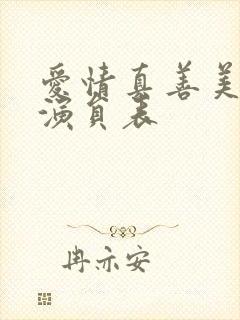 愛情真善美
演員表
冉亦安